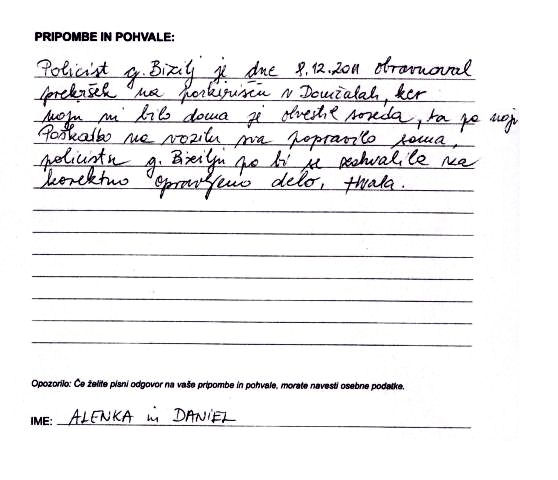 PRIPOMBE IN POHVALE:
Policist g. Bizilj je dne 8.12.2011 obravnoval
prekršek na parkirišču v Domžalah, ker
naju ni bilo doma je obvestil soseda, ta pa naju
Poškodbo na vozilu sva popravila sama,
policistu g. Bizilju pa bi se zahvalila za
korektno opravljeno delo, Hvala.
Opozorilo: Če želite pisni odgovor na vaše pripombe in pohvale, morate navesti osebne podatke.
IME: ALENKA in DANIEL